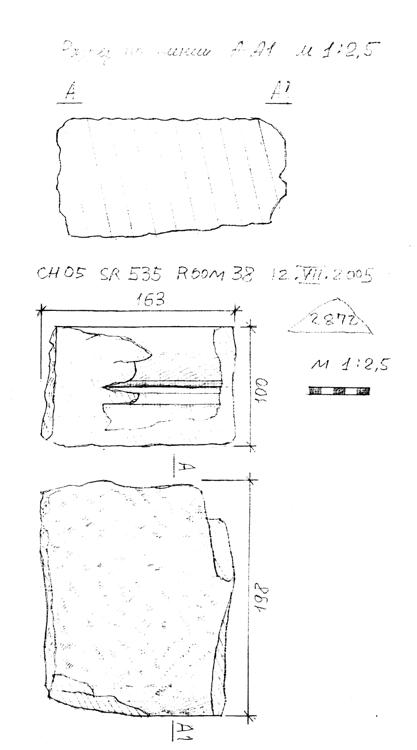 по линии А-А1 М 1:2,5
А А1
CH05 SR 535 ROOM 38 12.VII.2005
163
2872
М 1:2,5
100
А
198
А1